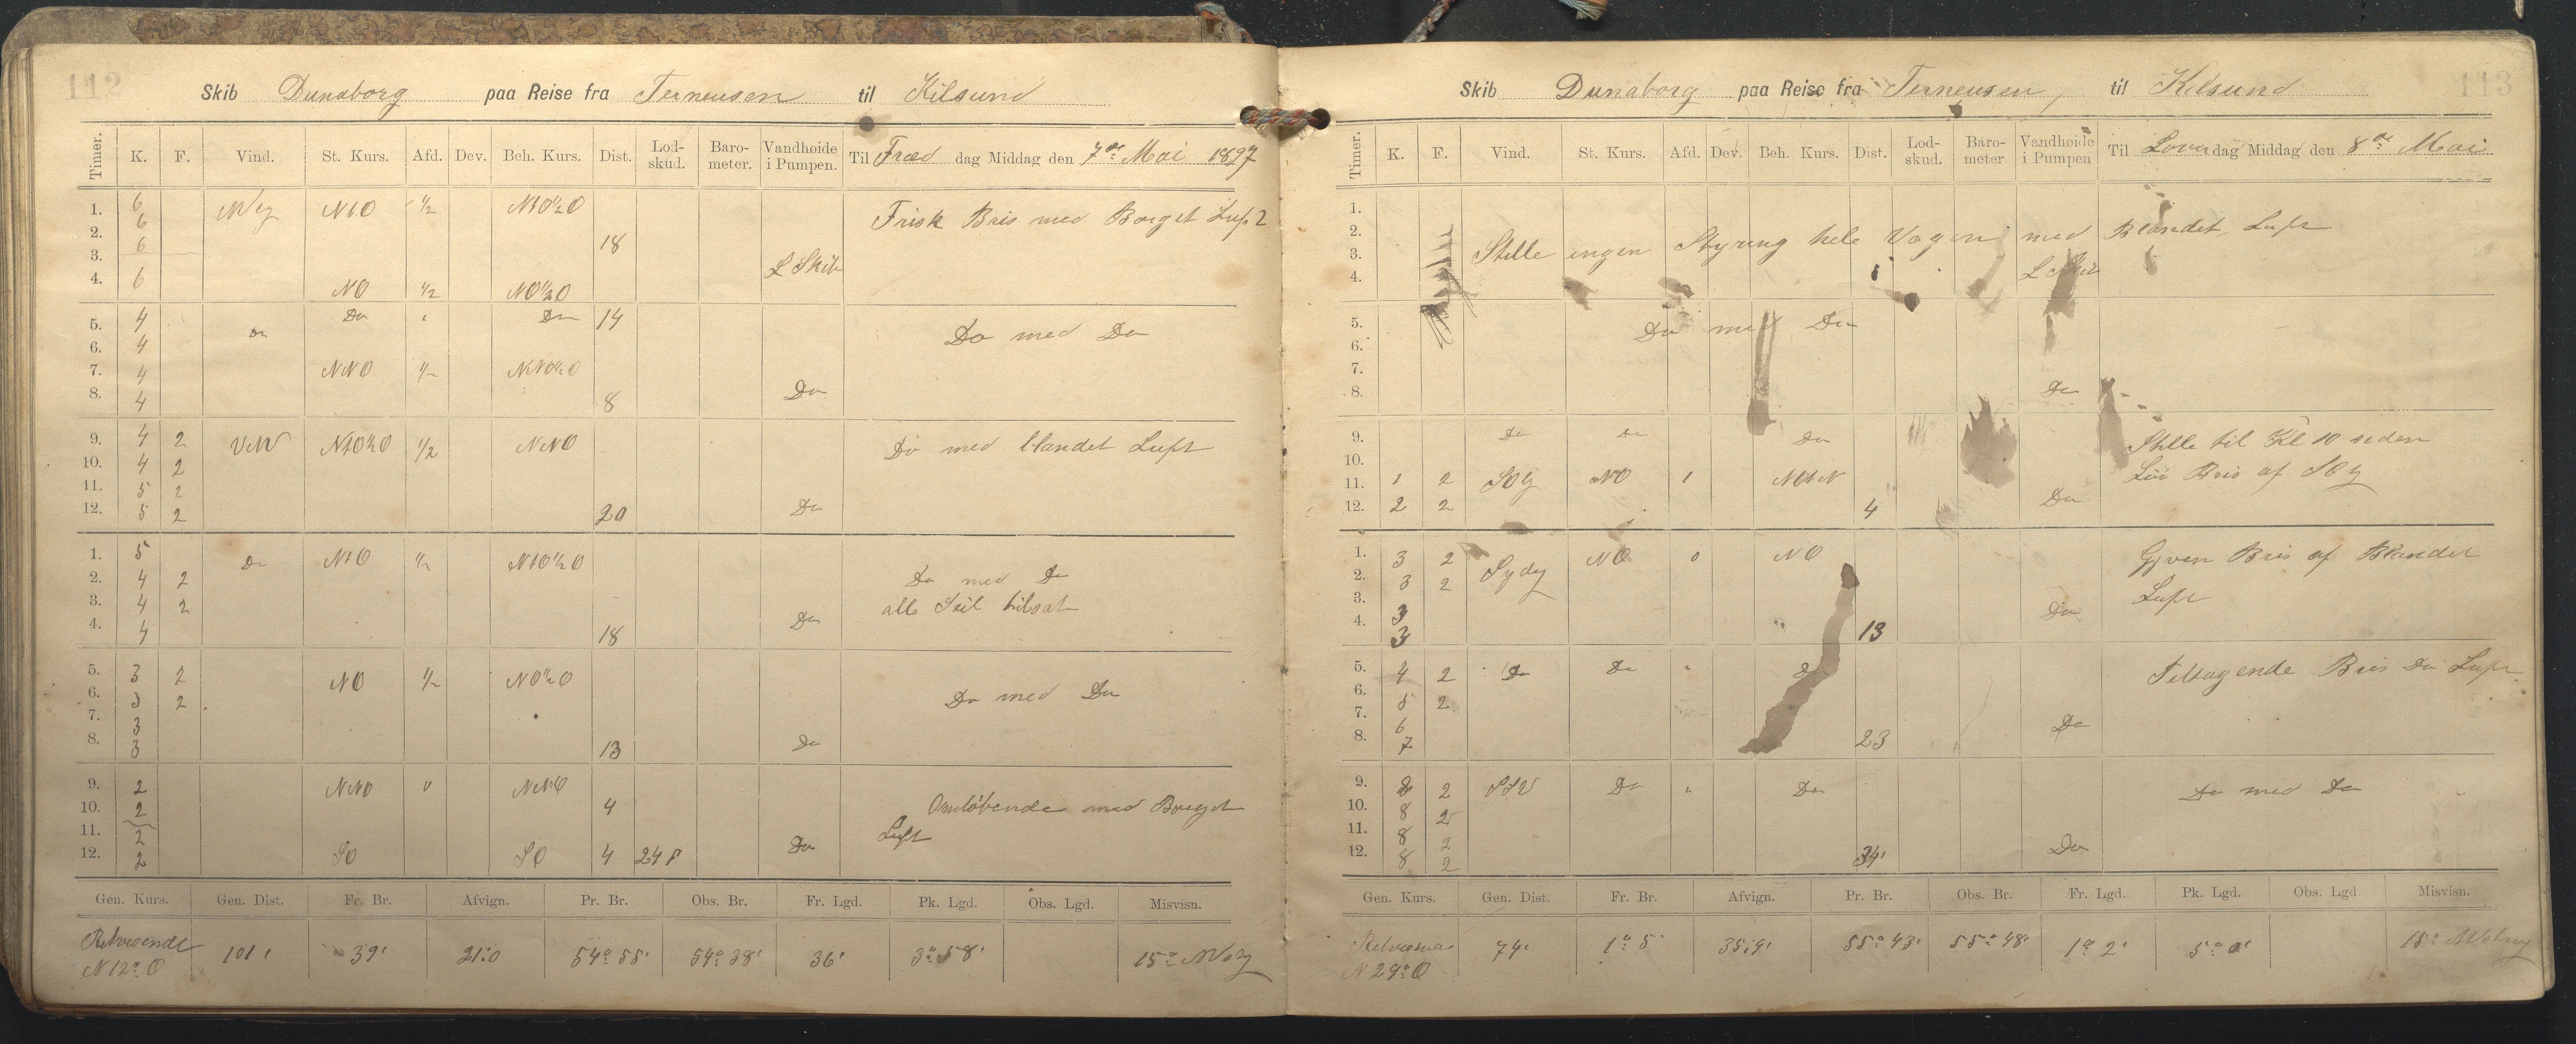 112
Skib Dunaborg paa Reise fra Terneusen til Kilsund
Timer. K. F. Vind. St. Kurs. Afd. Dev. Beh. Kurs. Dist. Lod-skud. Baro-meter. Vandhøide i Pumpen. Til Fred dag Middag den 7de Mai 1897
1. 6 NtO 1/2 NtO1/2O Frisk Bris med Borget Luft
2. 6
3. 6 18
4. 6 NO 1/2 NO1/2O L Skib
5. 4 Do Do Do 14 Do med Do
6. 4
7. 4 NNO 1/2 NNO1/2O
8. 4 8 Do
9. 4 2 VNV NtO1/2O 1/2 NNO Do med blandet Luft
10. 4 2
11. 5 2
12. 5 2 20 Do
1. 5 Do NtO 1/2 NtO1/2O
2. 4 2 Do med Do
3. 4 2 alle Seil tilsat
4. 4 18 Do
5. 3 2 NO 1/2 NO1/2O
6. 3 2 Do med Do
7. 3
8. 3 13 Do
9. 2 NNO 0 NNO
10. 2 4 Omløbende med Borget
11. 2 Luft
12. 2 SO SO 4 24 F Do
Gen. Kurs. Gen. Dist. Fr. Br. Afvign. Pr. Br. Obs. Br. Fr. Lgd. Pk. Lgd. Obs. Lgd. Misvisn.
Retvisende N 12° O 101' 39' 21:0 54° 55' 54° 38' 36' 3° 58' 15°
113
Skib Dunaborg paa Reise fra Terneusen, til Kilsund
Timer. K. F. Vind. St. Kurs. Afd. Dev. Beh. Kurs. Dist. Lod-skud. Baro-meter. Vandhøide i Pumpen Til Lover dag Middag den 8de Mai
1.
2. Stille ingen Styring hele Vagen med Blandet Luft
3.
4. L Skib
5. Do med Do
6.
7.
8. Do
9. Do Do Do Stille til Kl 10 siden
10. Lør Bris af SOg
11. 1 2 SOg NO 1 NOtN
12. 2 2 4 Do
1. 3 2 Sydg NO 0 NO Gjven Bris af Blandet
2. 3 2 Luft
3. 3 Do
4. 3 13
5. 4 2 Do Do " Do Tiltagende Bris Do Luft
6. 5 2
7. 6
8. 7 23 Do
9. 8 2 SSV Do " Do Do med Do
10. 8 2
11. 8 2
12. 8 2 34' Do
Gen. Kurs. Gen. Dist. Fr. Br. Afvign. Pr. Br. Obs. Br. Fr. Lgd. Pk. Lgd. Obs. Lgd. Misvisn.
N 29° O 74' 1° 5' 35:9' 55° 43' 55° 48' 1° 2' 5° 0' 15°